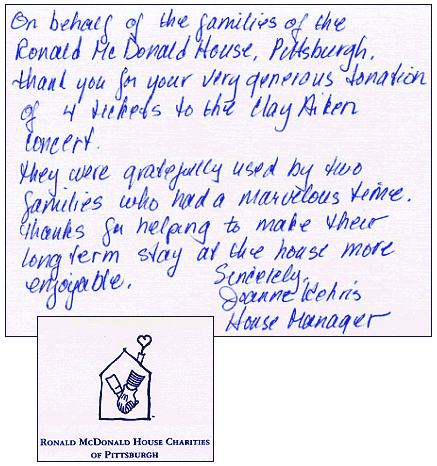 On behalf of the families of the
Ronald McDonald House, Pittsburgh,
thank you for your very generous donation
of 4 tickets to the Clay Aiken
concert.
They were gratefully used by two
families who had a marvelous time.
Thanks for helping to make their
long term stay at the house more
enjoyable.
Sincerely,
Joanne
House Manager
RONALD MCDONALD HOUSE CHARITIES
OF PITTSBURGH